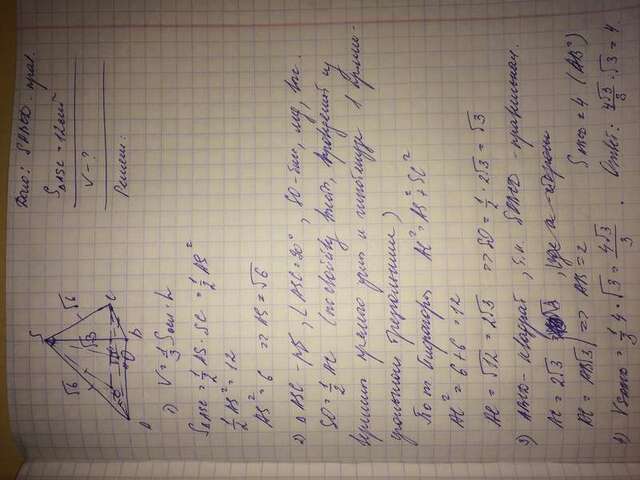 Дано: SABCD - прав.
S△ASC = 12см²
V - ?
Решение:
S
√6
√6
√3
D
C
B
1) V = 1/3 Sосн · h
S△ASC = 1/2 AS · SC = 1/2 AS²
1/2 AS² = 12
AS² = 6 => AS = √6
2) △ ASC - р/б, ∠ASC = 90°, SO - бис, мед, выс.
SO = 1/2 AC (по свойству мед, проведенной из
вершины прямого угла к гипотенузе в прямо-
угольном треугольнике)
По т Пифагора AC² = AS² + SC²
AC² = 6 + 6 = 12
AC = √12 = 2√3 => SO = 1/2 · 2√3 = √3
3) ABCD - квадрат, т.к. SABCD - правильная.
AC = 2√3, где a - сторона
AC = AB√3 => AB = 2
SABCD = 4 (AB²)
4) VSABCD = 1/3 4 · √3 = 4√3/3.
Ответ: 4√3/3 · √3 = 4.